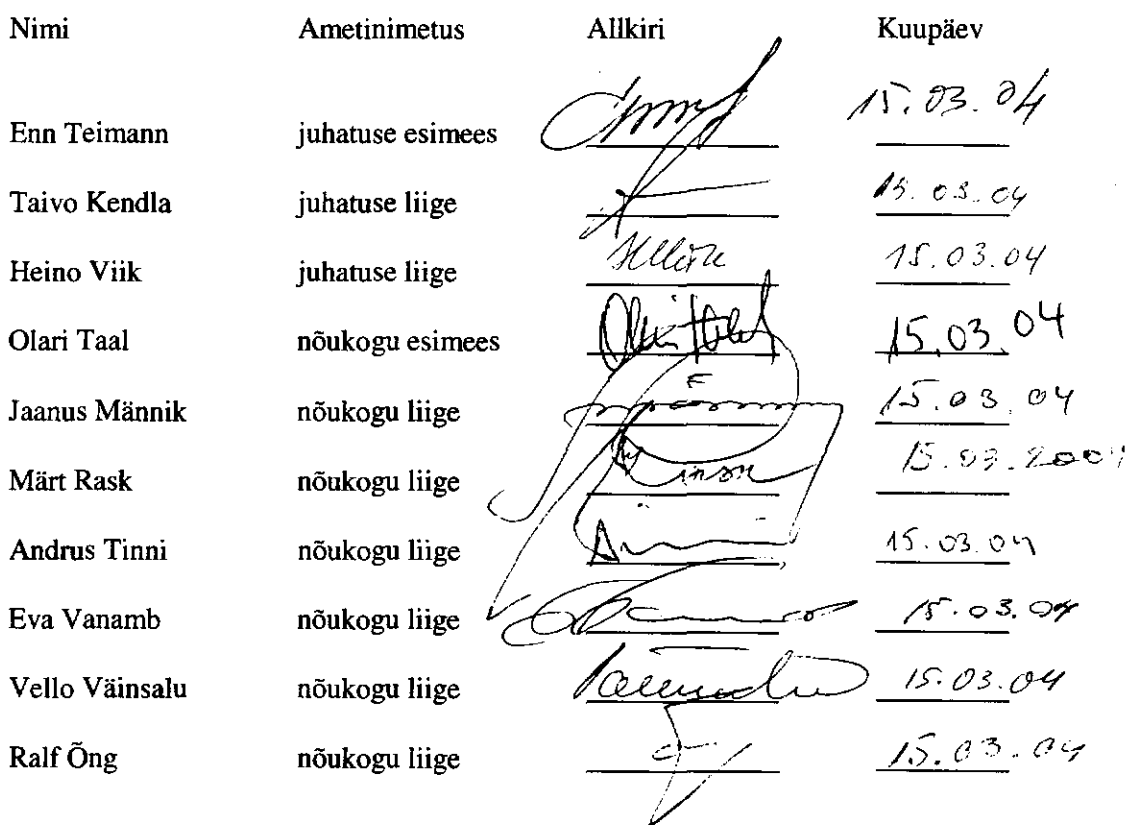 Nimi Ametinimetus Allkiri Kuupäev
Enn Teimann juhatuse esimees 15.03.04
Taivo Kendla juhatuse liige 15.03.04
Heino Viik juhatuse liige 15.03.04
Olari Taal nõukogu esimees 15.03.04
Jaanus Männik nõukogu liige 15.03.04
Märt Rask nõukogu liige 15.03.2004
Andrus Tinni nõukogu liige 15.03.04
Eva Vanamb nõukogu liige 15.03.04
Vello Väinsalu nõukogu liige 15.03.04
Ralf Õng nõukogu liige 15.03.04